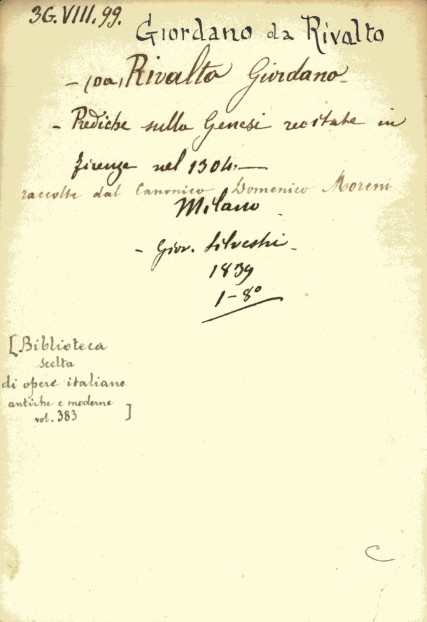 3G.VIII.99.
Giordano da Rivalto
- (Da) Rivalto Giordano -
- Prediche sulla Genesi recitate in
Firenze nel 1304. —
raccolte dal Canonico Domenico Moreni
Milano
- Giov. Silvestri -
1839
1-8°
[Biblioteca
scelta
di opere italiane
antiche e moderne
vol. 383 ]
C